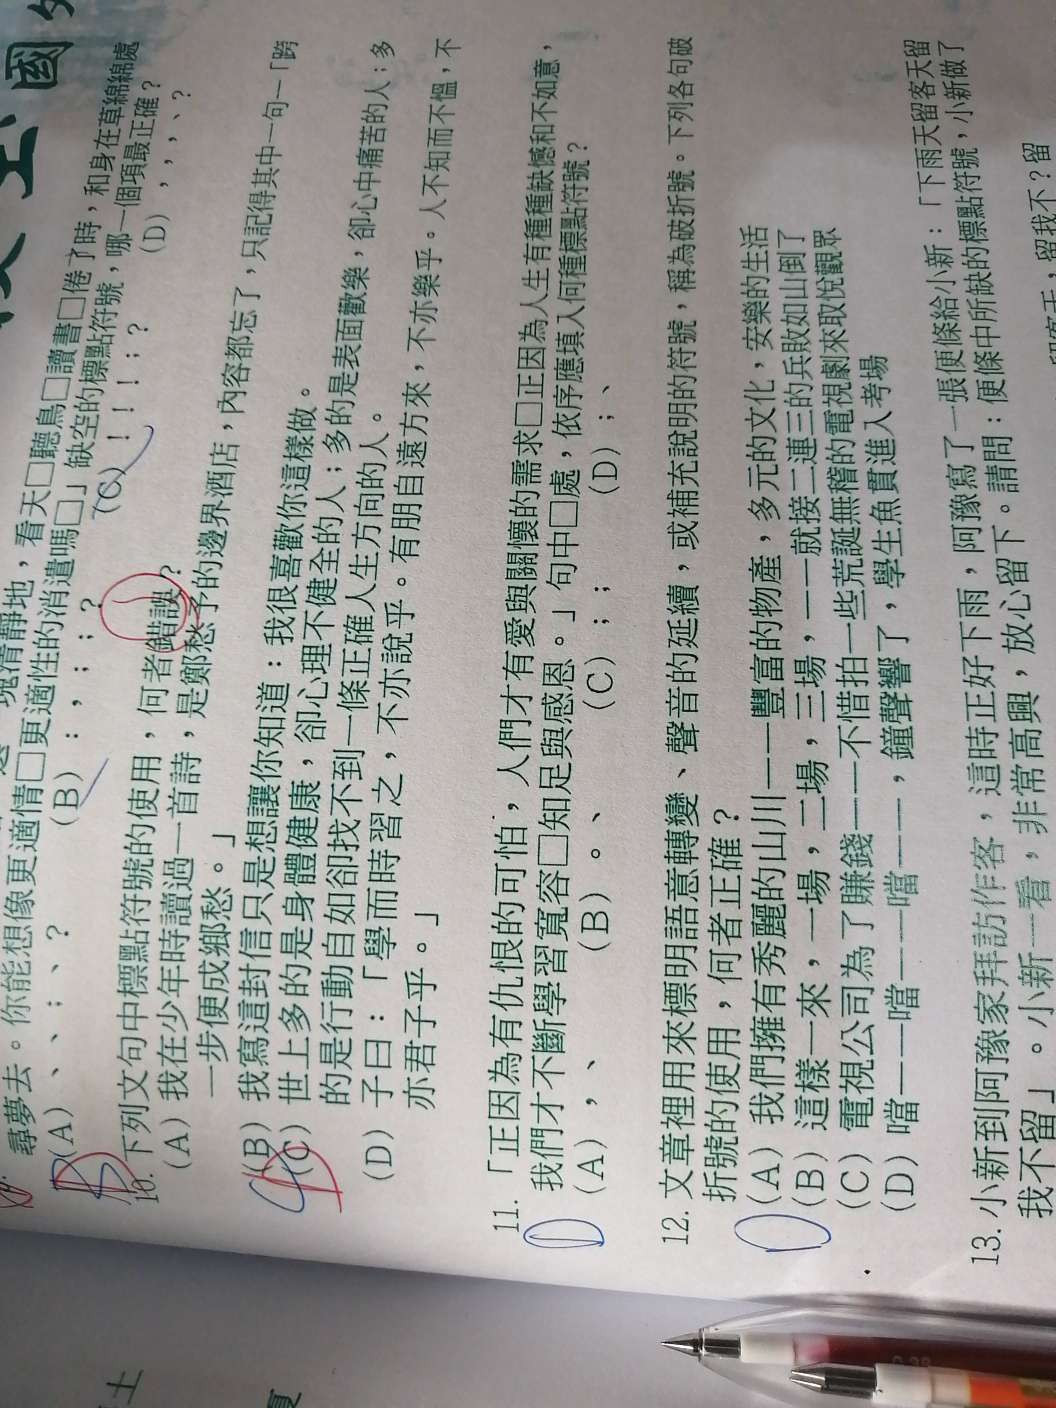 國
尋夢去。你能想像更適情□更適性的消遣嗎□」缺空的標點符號,哪一個項最正確?
塊清靜地,看天□聽鳥□讀書□倦了時,和身在草綿綿處
(A)、、;、? (B):,;;? (C)!!!;? (D),,,、?
10. 下列文句中標點符號的使用,何者錯誤?
(A) 我在少年時讀過一首詩,是鄭愁予的邊界酒店,內容都忘了,只記得其中一句─「跨
一步便成鄉愁。」
(B) 我寫這封信只是想讓你知道:我很喜歡你這樣做。
(C) 世上多的是身體健康,卻心理不健全的人;多的是表面歡樂,卻心中痛苦的人;多
的是行動自如卻找不到一條正確人生方向的人。
(D) 子曰:「學而時習之,不亦說乎。有朋自遠方來,不亦樂乎。人不知而不慍,不
亦君子乎。」
D
11. 「正因為有仇恨的可怕,人們才有愛與關懷的需求□正因為人生有種種缺憾和不如意,
我們才不斷學習寬容□知足與感恩。」句中□處,依序應填入何種標點符號?
(A),、 (B)。、 (C);; (D);、
12. 文章裡用來標明語意轉變、聲音的延續,或補充說明的符號,稱為破折號。下列各句破
折號的使用,何者正確?
(A) 我們擁有秀麗的山川──豐富的物產,多元的文化,安樂的生活
(B) 這樣一來,一場,二場,三場,──就接二連三的兵敗如山倒了
(C) 電視公司為了賺錢──不惜拍一些荒誕無稽的電視劇來取悅觀眾
(D) 噹──噹──噹──,鐘聲響了,學生魚貫進入考場
13. 小新到阿豫家拜訪作客,這時正好下雨,阿豫寫了一張便條給小新:「下雨天留客天留
我不留」。小新一看,非常高興,放心留下。請問:便條中所缺的標點符號,小新做了
留我不?留
士
夏